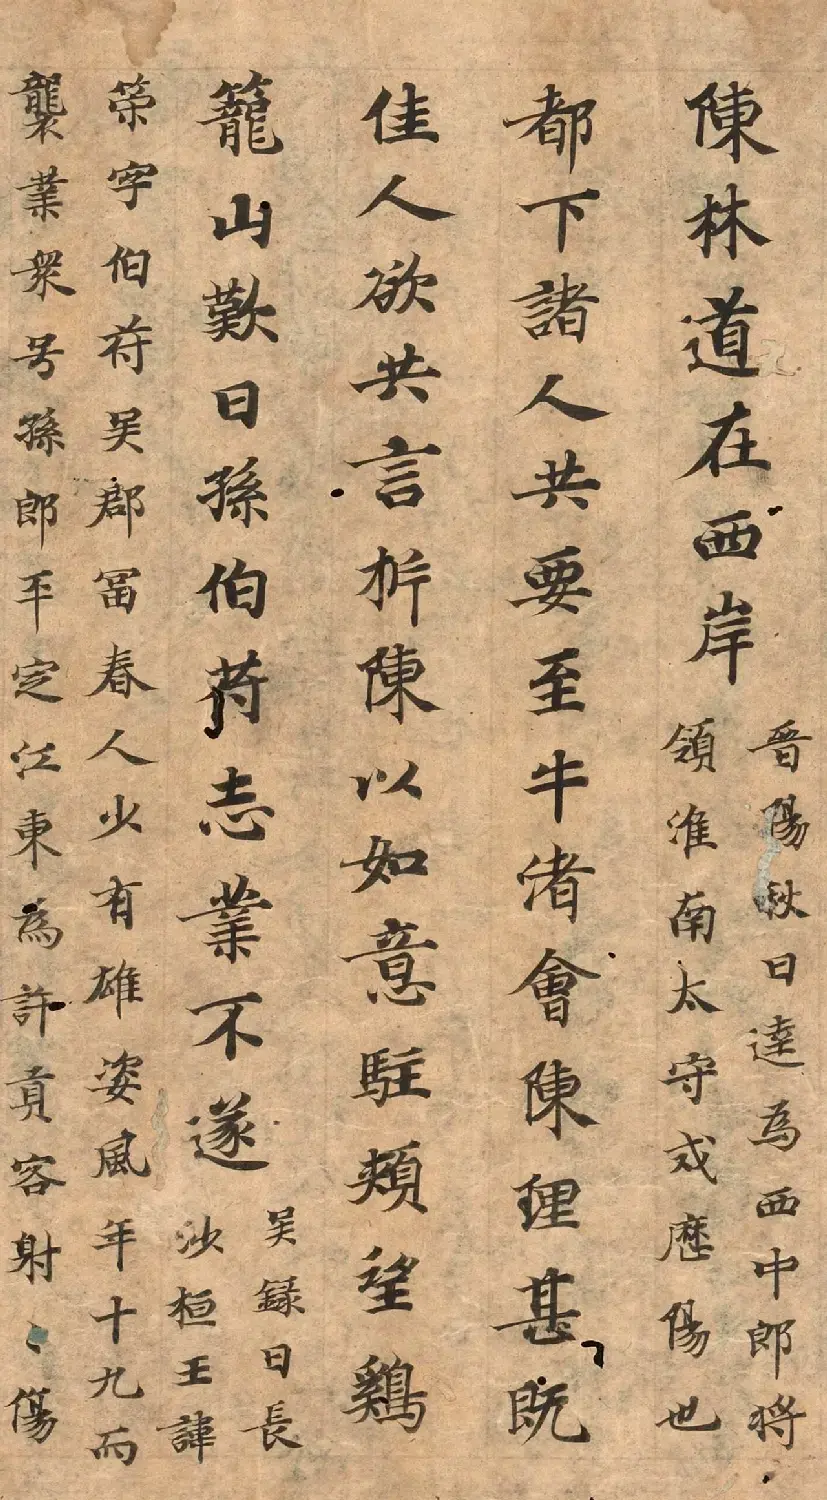 陳林道在西岸
晉陽秋曰逵為西中郎將
領淮南太守戍歷陽也
都下諸人共要至牛渚會陳理甚既
佳人欲共言折陳以如意駐頰望鷄
籠山歎曰孫伯苻志業不遂
吴錄曰長
沙桓王諱
䇿字伯苻吴郡冨春人少有雄姿風年十九而
襲業衆号孫郎平定江東為許貢客射〻傷